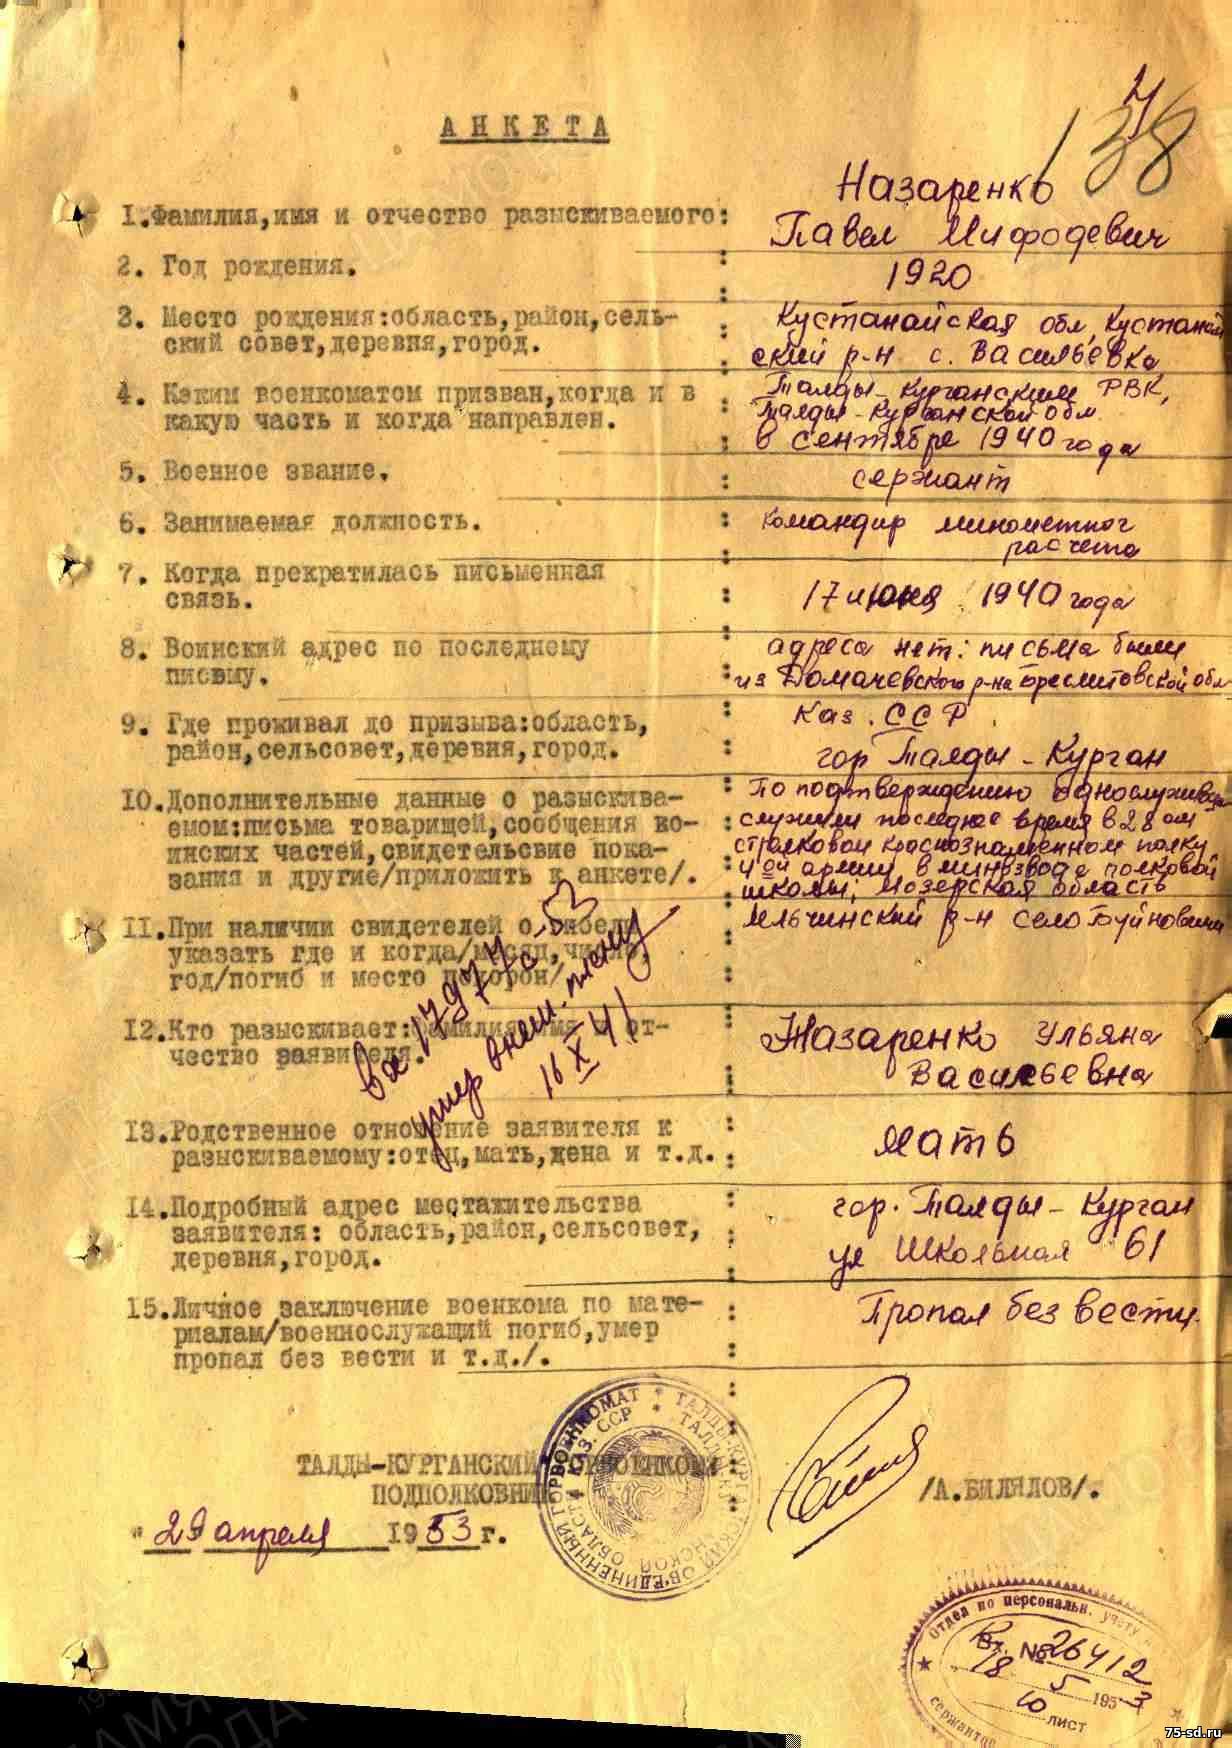 АНКЕТА
138
1.Фамилия,имя и отчество разыскиваемого:
Назаренко
Павел Мифодевич
2. Год рождения.
1920
3. Место рождения:область,район,сель-
ский совет,деревня,город.
Кустанайская обл, Кустанай
ский р-н с. Васильевка
4. Каким военкоматом призван,когда и в
какую часть и когда направлен.
Талды-Курганским РВК,
Талды-Курганской обл.
в сентябре 1940 года
5. Военное звание.
сержант
6. Занимаемая должность.
командир минометног
расчета
7. Когда прекратилась письменная
связь.
17 июня 1940 года
8. Воинский адрес по последнему
письму.
адреса нет: письма были
из Домачевского р-на Брестлитовской обл
9. Где проживал до призыва:область,
район,сельсовет,деревня,город.
Каз. ССР
гор Талды-Курган
10.Дополнительные данные о разыскива-
емом:письма товарищей,сообщения во-
инских частей,свидетельсвие пока-
зания и другие/приложить к анкете/.
По подтверждению
служили последнее время в 28 ом
стрелковом краснознаменном полку
4ой армии в минвзводе полковой
школы; Мозерская область
11.При наличии свидетелей о гибели
указать где и когда/месяц,число,
год/погиб и место похорон/
Мельчинский р-н село Буйновичи
вх. 17977с-53
умер в нем. плену
16 X 41
12.Кто разыскивает:фамилия,имя и от-
чество заявителя.
Назаренко Ульяна
Васильевна
13.Родственное отношение заявителя к
разыскиваемому:отец,мать,жена и т.д.
Мать
14.Подробный адрес местажительства
заявителя: область,район,сельсовет,
деревня,город.
гор. Талды-Курган
ул Школьная 61
15.Личное заключение военкома по мате-
риалам/военнослужащий погиб,умер
пропал без вести и т.д./.
Пропал без вести.
ТАЛДЫ-КУРГАНСКИЙ ГОРВОЕНКОМ
ПОДПОЛКОВНИК
/А.БИЛЯЛОВ/.
"29 апреля 1953 г.
Отдел по персональн. учету
Вх. №26412
18 5 1953
10 лист
сержантов
75-sd.ru